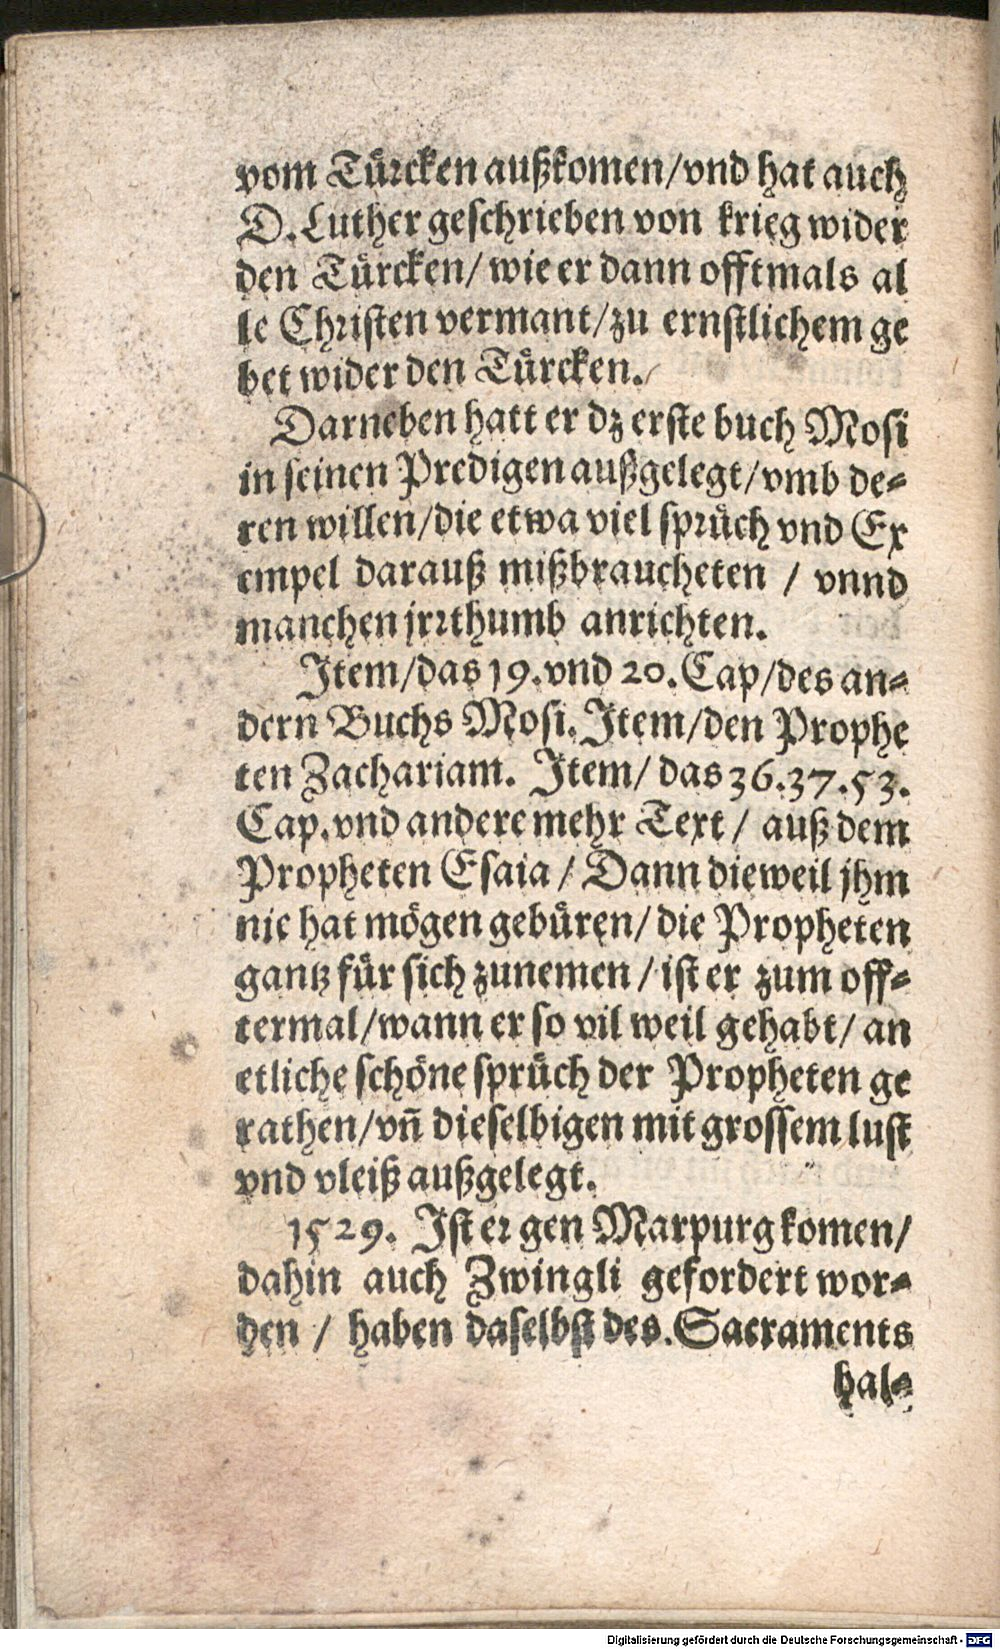 vom Türcken außkomen/vnd hat auch
D. Luther geschrieben von krieg wider
den Türcken/ wie er dann offtmals al
le Christen vermant/zu ernstlichem ge
bet wider den Türcken.
Darneben hatt er dz erste buch Mosi
in seinen Predigen außgelegt/vmb de⸗
ren willen/die etwa viel sprüch vnd Ex
empel darauß mißbraucheten / vnnd
manchen jrrthumb anrichten.
Item/das 19. vnd 20. Cap/des an⸗
dern Buchs Mosi. Item/den Prophe
ten Zachariam. Item/ das 36.37.53.
Cap. vnd andere mehr Text / auß dem
Propheten Esaia / Dann dieweil jhm
nie hat mögen gebüren/ die Propheten
gantz für sich zunemen / ist er zum off⸗
termal/wann er so vil weil gehabt/ an
etliche schöne sprüch der Propheten ge
rathen/vñ dieselbigen mit grossem lust
vnd vleiß außgelegt.
1529. Ist er gen Marpurg komen/
dahin auch Zwingli gefordert wor⸗
den / haben daselbst des. Sacraments
hal⸗
Digitalisierung gefördert durch die Deutsche Forschungsgemeinschaft - DFG